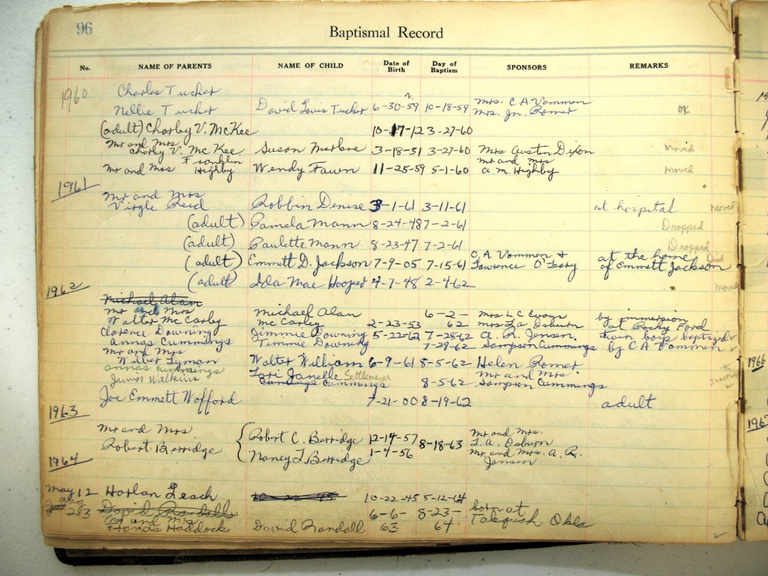 96
Baptismal Record
No. NAME OF PARENTS NAME OF CHILD Date of Birth Day of Baptism SPONSORS REMARKS
1960 Charles Tucker
Nellie Tucker David Louis Tucker 6-30-59 10-18-59 Mrs. C.A. Vammen OK
Mrs. Jn. Romer
(adult) Charley V. McKee 10-17-12 3-27-60
Mr and Mrs Charley V. McKee Susan Marlene 3-18-51 3-27-60 Mrs Austin Dixon moved
Mr and Mrs Franklin Highby Wendy Fawn 11-25-59 5-1-60 Mr and Mrs A.M. Highby moved
1961
Mr and Mrs
Virgle Reid Robbin Denise 3-1-61 3-11-61 at hospital moved
(adult) Pamela Mann 8-24-48 7-2-61 Dropped
(adult) Paulette Mann 8-23-47 7-2-61 Dropped
(adult) Emmett D. Jackson 7-9-05 7-15-61 C.A. Vammen & Lawrence O'Gary at the home of Emmett Jackson Died
(adult) Ida Mae Hooper 4-7-48 2-4-62 moved
1962
Michael Alan
Mr and Mrs Michael Alan 6-2- Mrs L C Evans by immersion
Walter McCarley McCarley 2-23-53 62 Mrs La Osburn at Rocky Ford
Clarence Downing Jimmie Downing 5-22-62 7-28-62 A. R. Jensen
Annas Cummings Timmie Downing 7-29-62 Sampson Cummings by C.A. Vammen
Mr and Mrs
Wilber Lyman Walter William 6-9-61 8-5-62 Helen Romer
Annas Cummings Lori Janelle Settlemeyer Mr and Mrs
Junior Watkins Cummings 8-5-62 Sampson Cummings
Joe Emmett Wofford 7-21-00 8-19-62 adult
1963
Mr and Mrs Robert C. Berridge 12-14-57 8-18-63 Mr and Mrs. L.A. Osburn
Robert Berridge Nancy L Berridge 1-4-56 Mr and Mrs. A. R. Jensen
1964
May 12 Harlan Leach 10-22-45 10-22-45 5-12-64
Aug 23 David Randall 6-6- 8-23- born at
Mr and Mrs Francis Haddock David Randall 63 64 Talequah Okla
1966